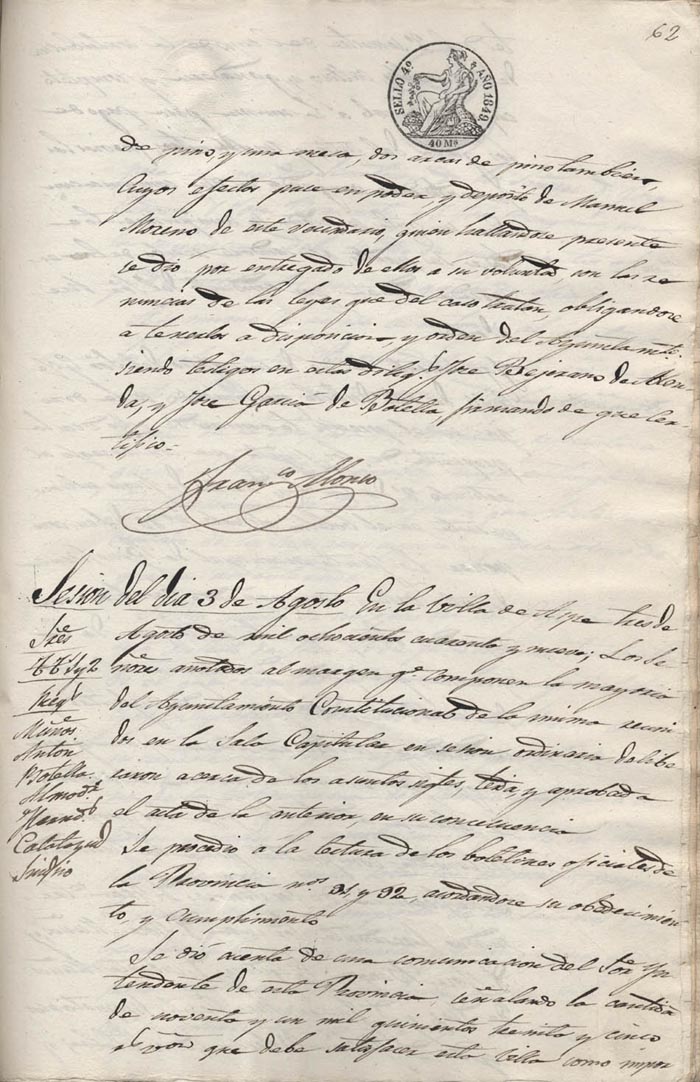 62
SELLO 4º AÑO 1849.
40 Mˢ
de pino y una mesa, dos arcas de pino tambien,
Cuyos efectos puse en poder y depósito de Manuel
Moreno de este vecindario, quien hallandose presente
se dió por entregado de ellos a su voluntad con las re
nuncias de las leyes que del caso tratan, obligandose
a tenerlos a disposicion y orden del Ayuntamtº.
siendo testigos en estas dilig.ˢ Jose Bejerano de
das, y Jose Garcia de Botella, firmando de que cer
tifico.=
Franᶜᵒ Alonso
Sesion del dia 3 de Agosto En la Villa de Aspe tres de
Agosto de mil ochocientos cuarenta y nueve; Los Se
ñores anotados al margen q.ᵉ componen la mayoria
del Ayuntamiento Constitucional de la misma reuni
dos en la Sala Capitular en sesion ordinaria delibe
raron acerca de los asuntos sigtes, leida y aprobada
el acta de la anterior, en su concecuencia
Se procedió a la lectura de los boletines oficiales de
la Provincia nᵒˢ 91 y 92, acordandose su obedecimien
to, y cumplimiento
Se dió cuenta de una comunicacion del Sᵒʳ Yn
tendente de esta Provincia, señalando la cantidad
de noventa y un mil quinientos treinta y cinco
rˢ vⁿ que debe satisfacer esta Villa como impor
Sres
TT 1 y 2
Regˢ
Muñoz
Anton
Botella
Almodʳ
Hernd.ˢ
Calatayud
Sindico